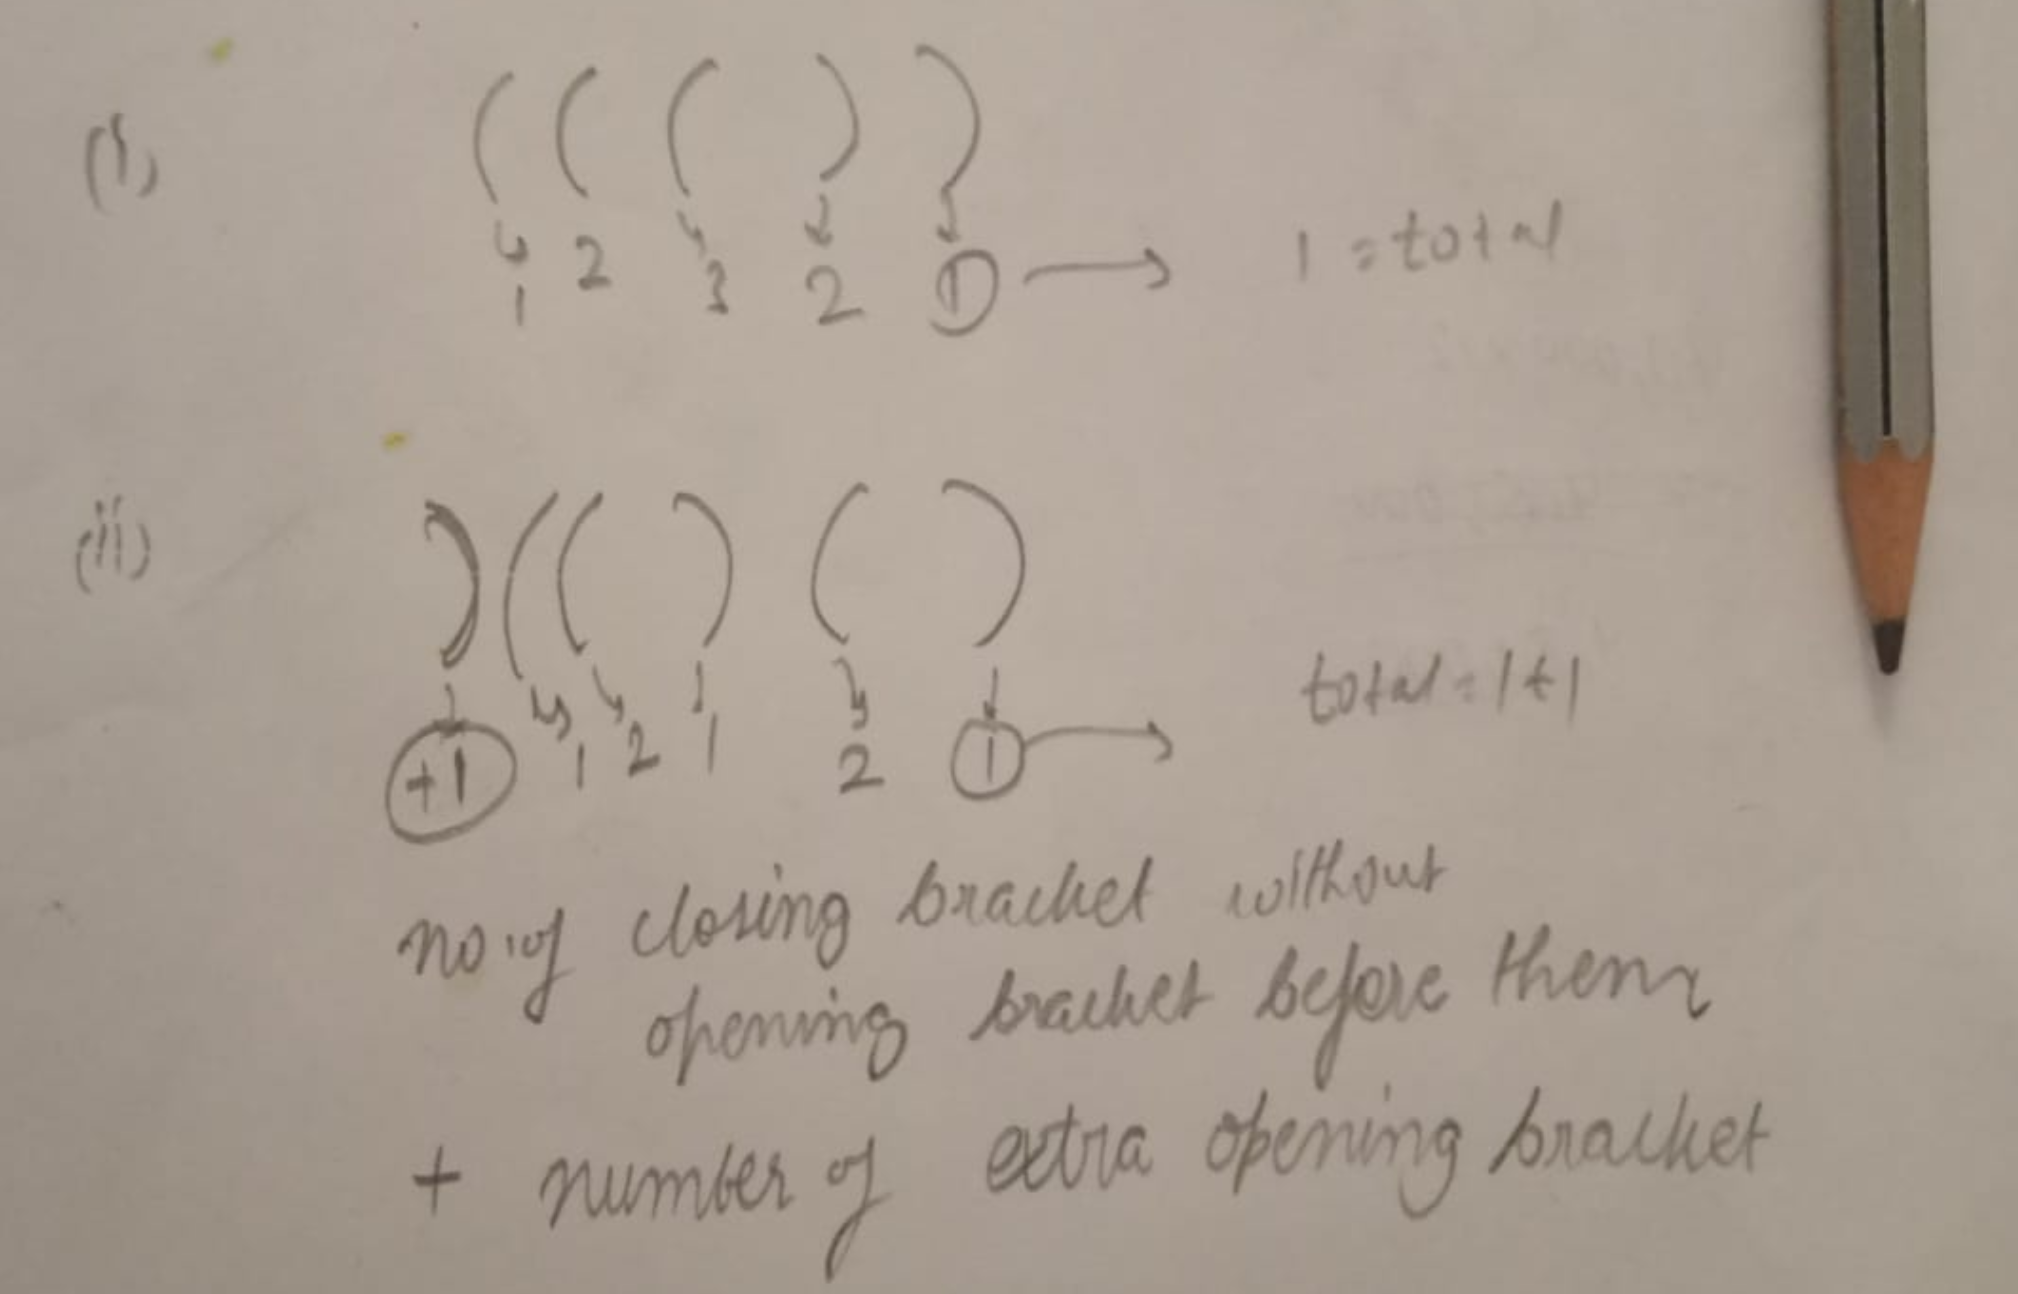 (i) ( ( ( ) )
1 2 3 2 1 → 1 = total
(ii) ) ( ( ) ( )
+1 1 2 1 2 1 → total = 1+1
no. of closing bracket without
opening bracket before them
+ number of extra opening bracket